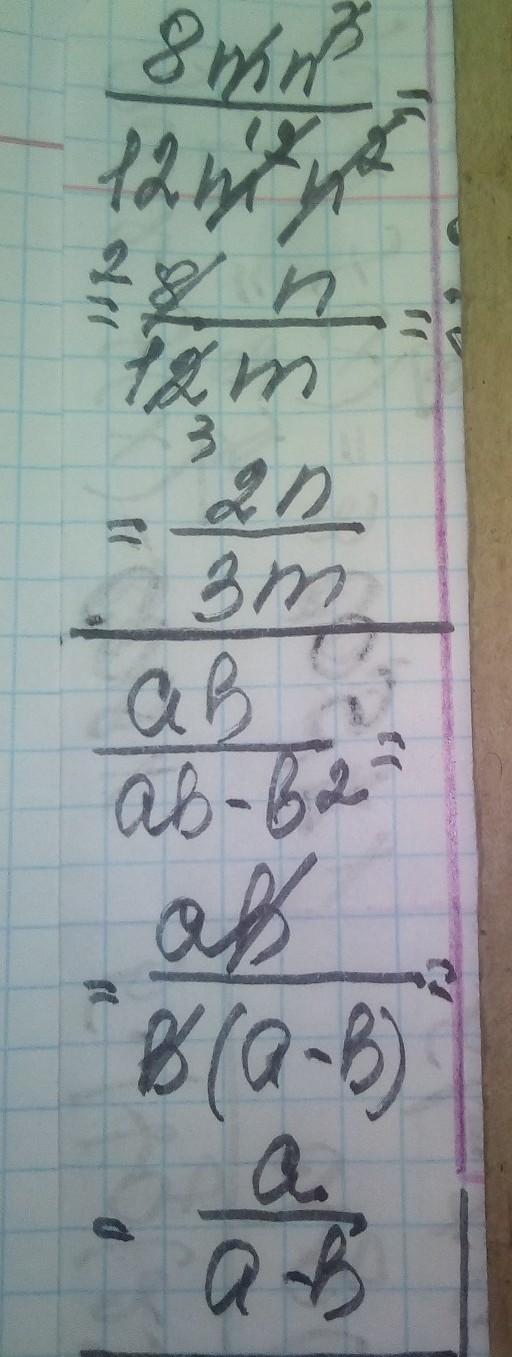 8mn³
=
12m²n²
= 8 n
=
12 m
2
3
= 2n
3m
ab
=
ab - b²
= ab
=
b(a - b)
= a
a - b